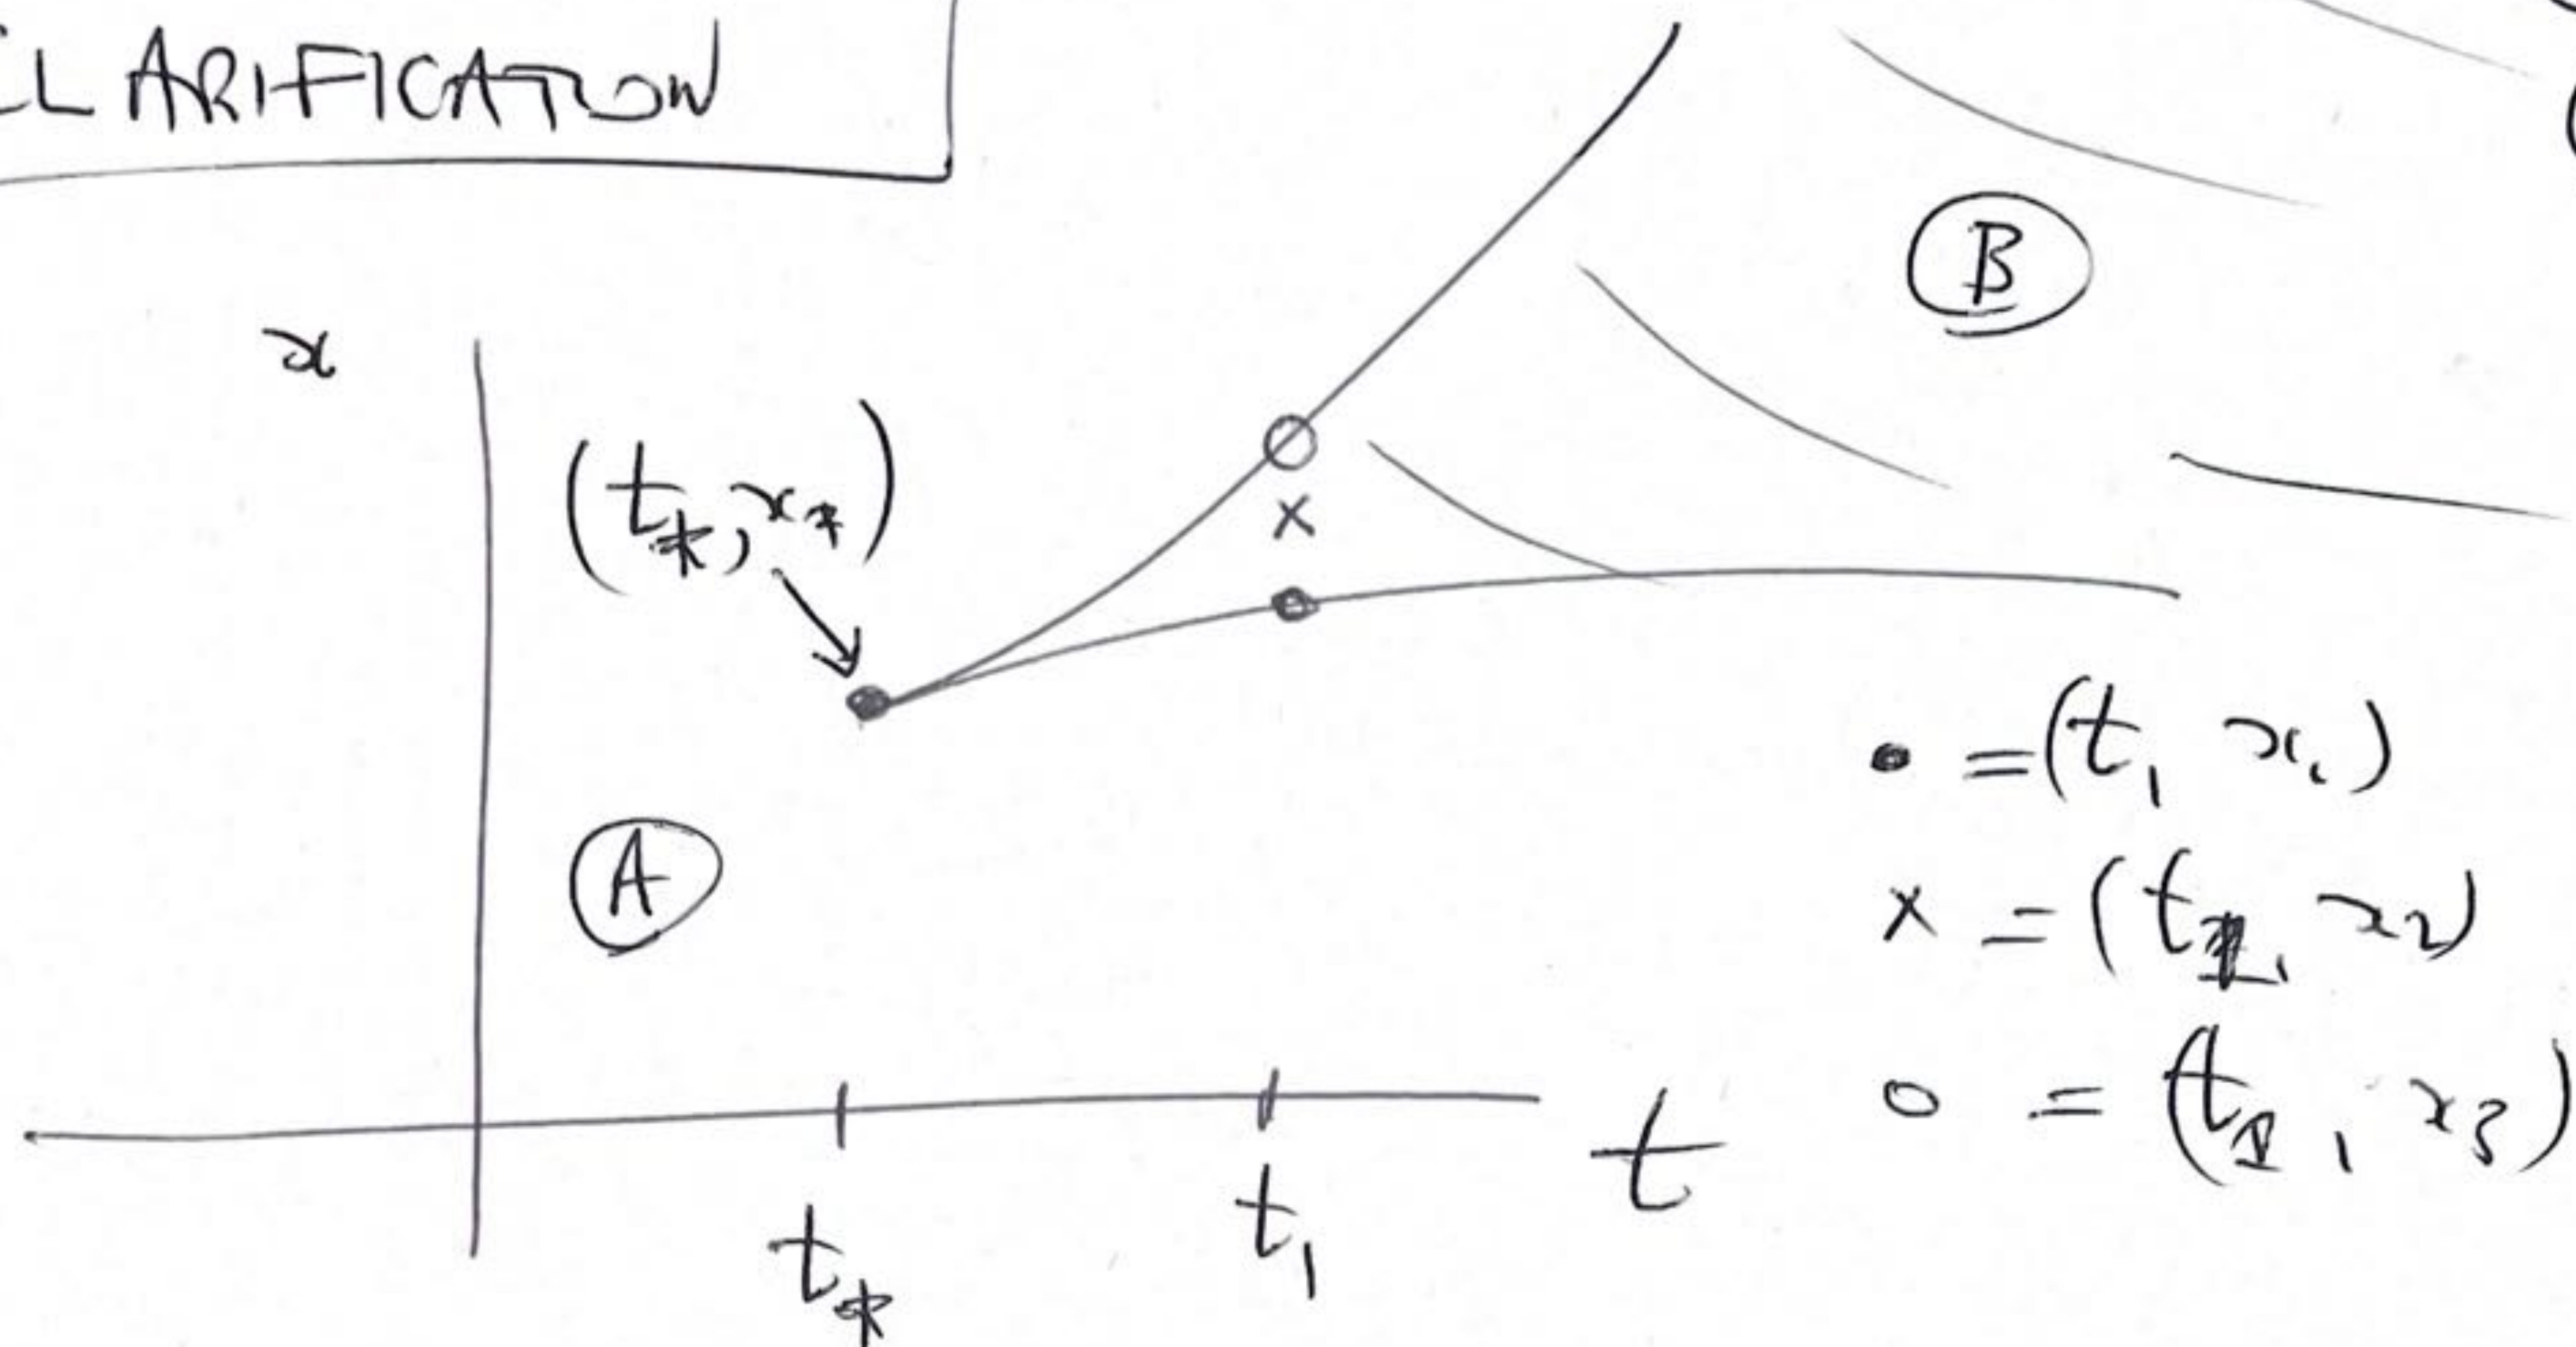 CLARIFICATION
x
(t*, x*)
B
A
• = (t1 x1)
x = (t1, x2)
o = (t1, x3)
t
t* t1